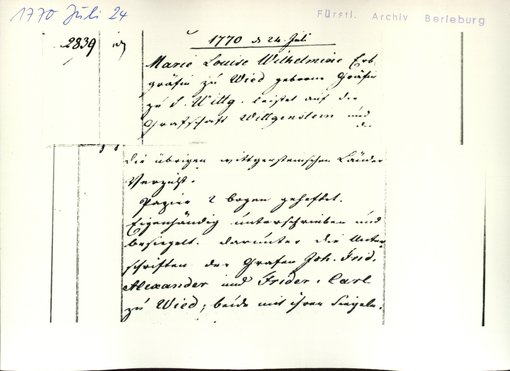 1770 Juli 24
Fürstl. Archiv Berleburg
2839
1770 d 24. Juli
Marie Louise Wilhelmine Erb
gräfin zu Wied geborene Gräfin
zu S. Wittg. leistet auf die
Grafschaft Wittgenstein und
die übrigen wittgensteinschen Länder
Verzicht.
Papier 2 bogen geheftet.
Eigenhändig unterschrieben und
besiegelt. darunter die Unter
schriften der Grafen Joh. Frid.
Alexander und Frider. Carl
zu Wied, beide mit ihren Siegeln.